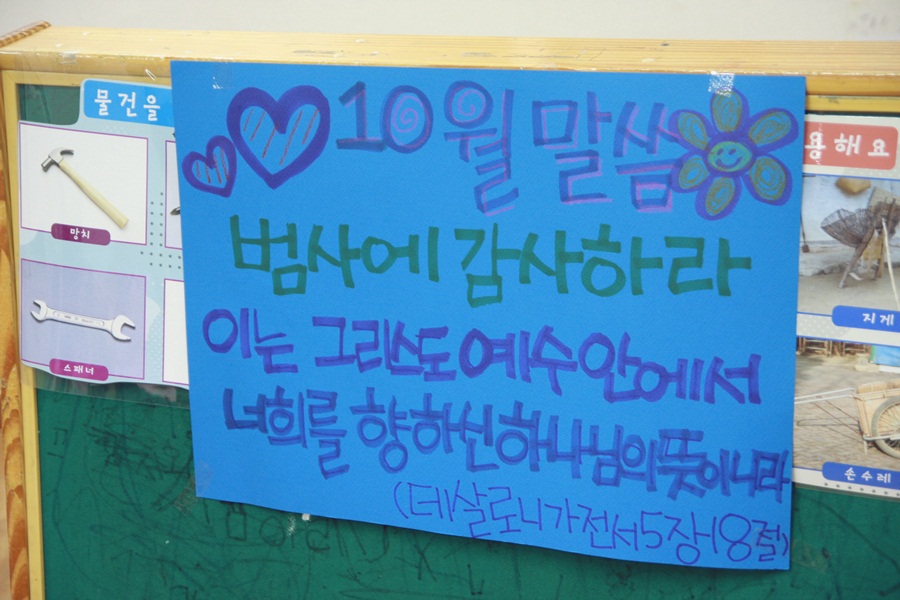 물건을
10월 말씀
용해요
망치
범사에 감사하라
이는 그리스도 예수 안에서
지게
스패너
너희를 향하신 하나님의 뜻이니라
손수레
(데살로니가전서5장18절)